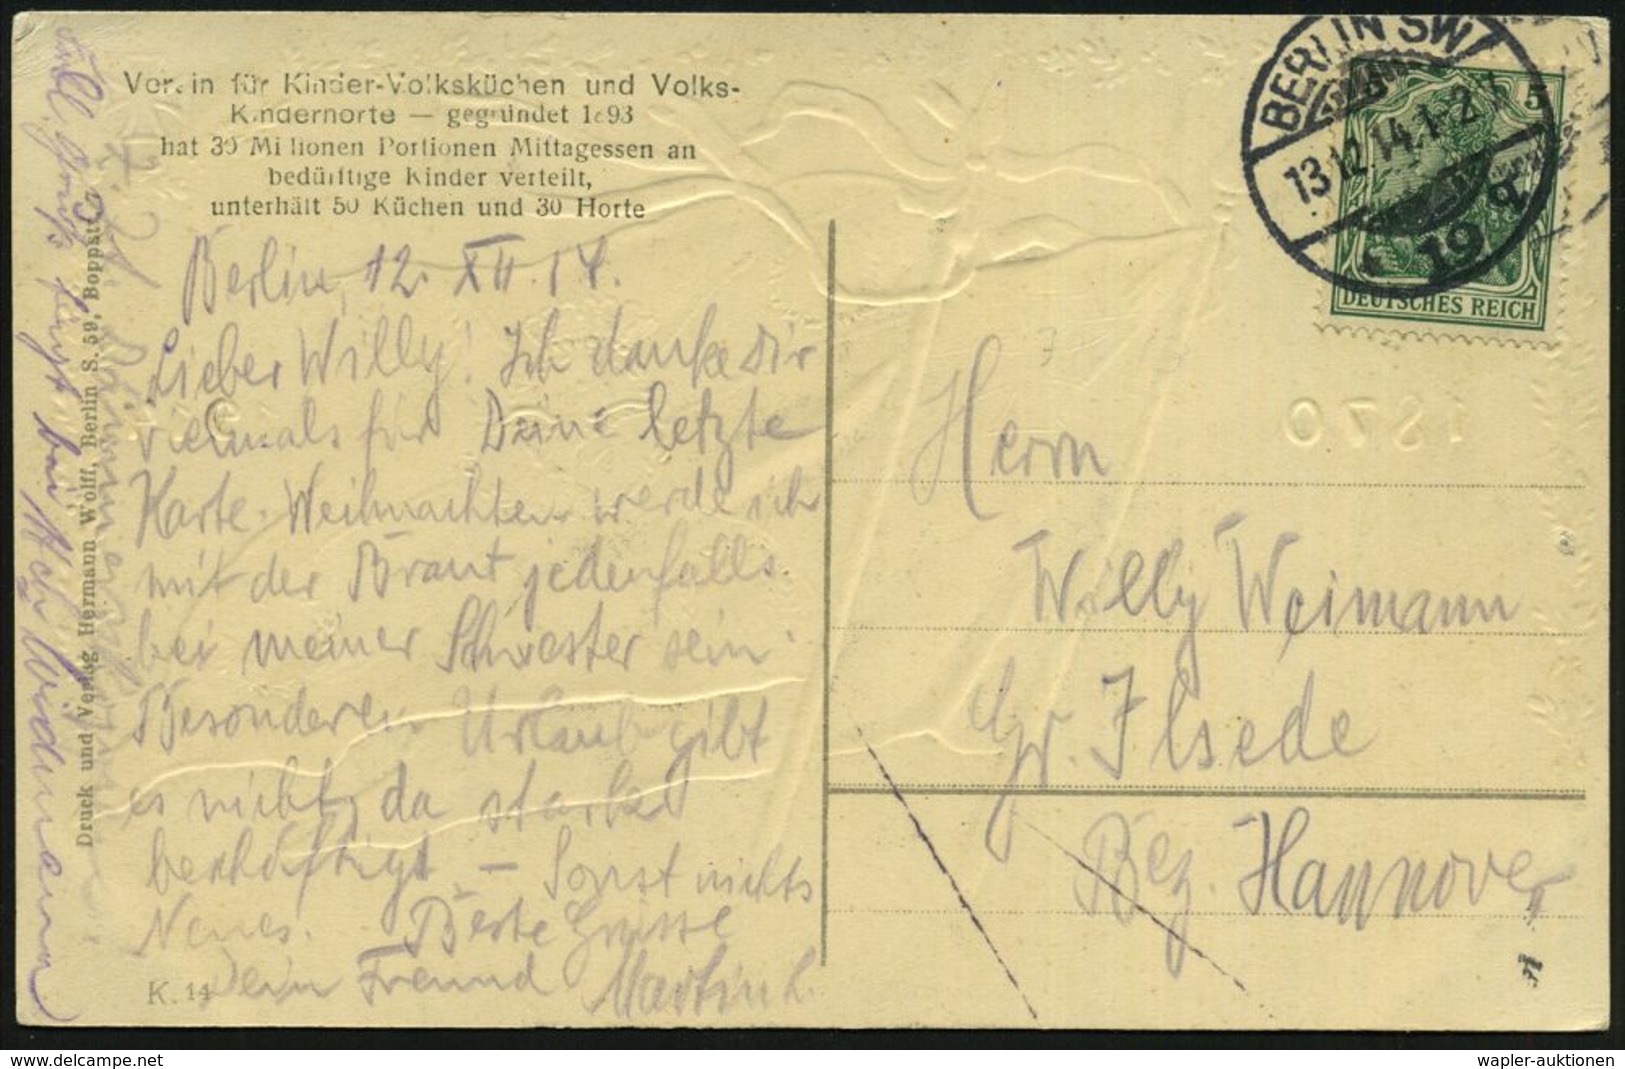 Verein für Kinder-Volksküchen und Volks-
Kindernorte — gegründet 1893
hat 39 Millionen Portionen Mittagessen an
bedürftige Kinder verteilt,
unterhält 50 Küchen und 30 Horte
Berlin, 12. XII. 14.
Lieber Willy! Ich danke Dir
vielmals für Deine letzte
Karte. Weihnachten werde ich
mit der Braut jedenfalls
bei meiner Schwester sein.
Besonderen Urlaub gibt
es nicht, da stark
beschäftigt — Sonst nichts
Neues. Beste Grüsse
Dein Freund Martin L.
K. 14
Druck und Verlag Hermann Wolff, Berlin S. 59, Boppstr.
BERLIN SW
13.12.14.1-2
19
5
DEUTSCHES REICH
1870
Herrn
Willy Weimann
Gr. Ilsede
Bez. Hannover
wapler-auktionen.de
wapler-auktionen